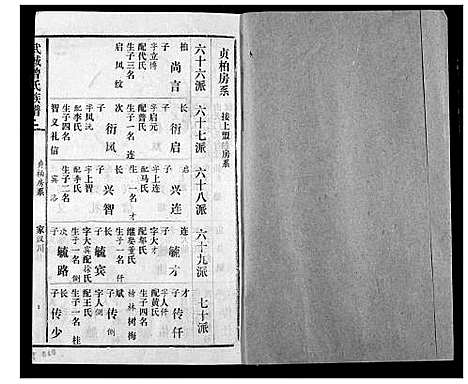 贞柏房系
接上盟 房系
六十六派
六十七派
六十八派
六十九派
七十派
柏
子 尚言
字立博
配代氏
生子三名
启 风 纹
长
子 衍启
字启元
配曾氏
生子一名 连
次
子 衍风
字风沅
配李氏
生子四名
智 义 礼 信
子 兴连
配马氏
生子一名 才
长
子 兴智
字上智
配李氏
生子二名
宾 路
连
子 毓才
字大才
配邹氏
继娶董氏
生子一名
长
子 毓宾
字大宾
配徐氏
生子一名
次
子 毓路
才
子 传仟
字人仟
配黄氏
林 树 梅
子 传
字人
配王氏
生子一名 桂
长
子 传少
武城曾氏族谱
贞柏房系
家汉川